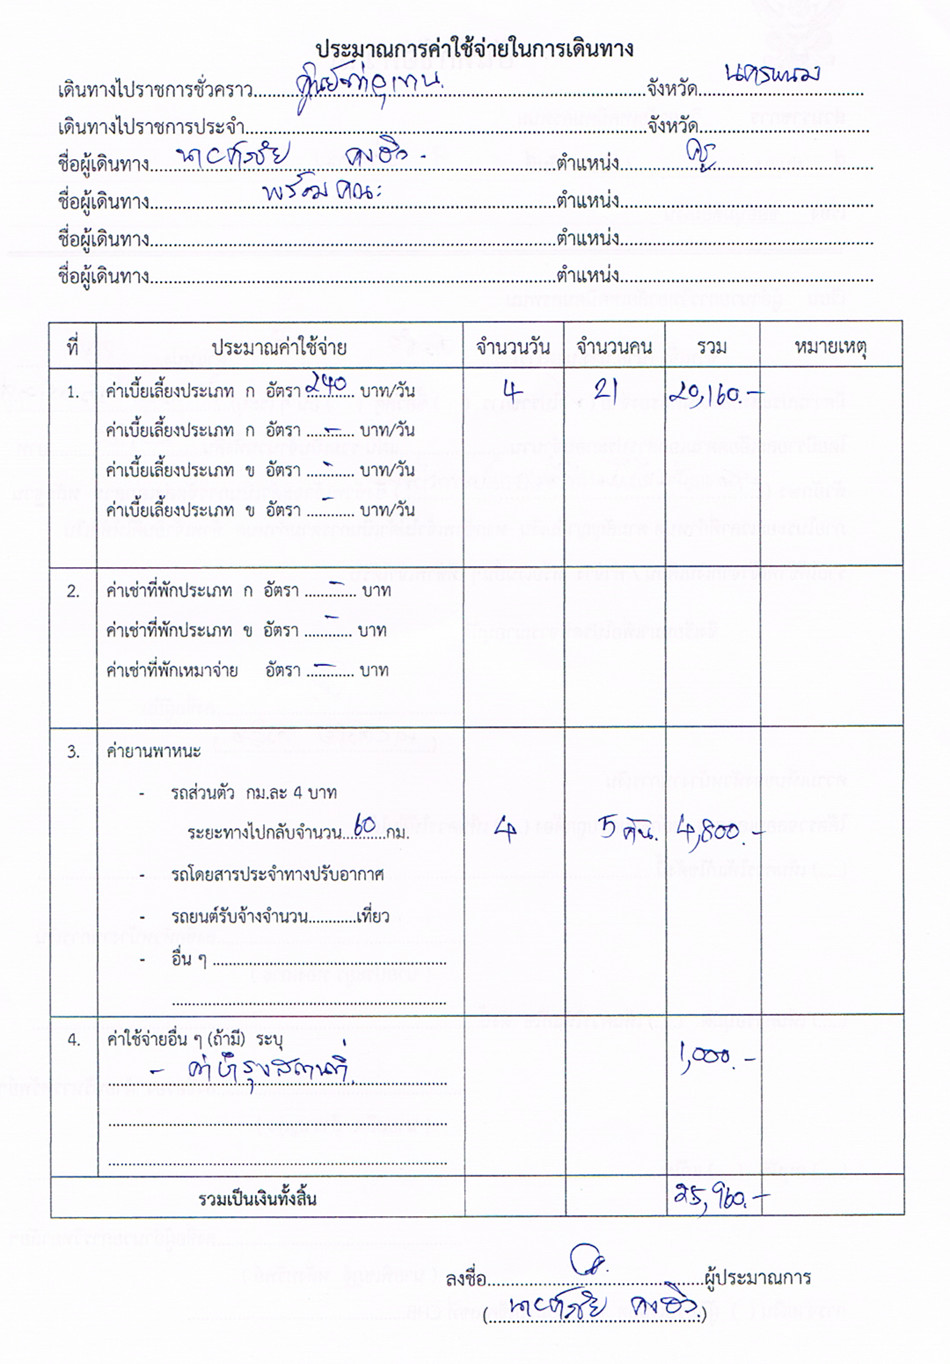 ประมาณการค่าใช้จ่ายในการเดินทาง
เดินทางไปราชการชั่วคราว.......... จังหวัด..........
เดินทางไปราชการประจำ.......... จังหวัด..........
ชื่อผู้เดินทาง.......... ตำแหน่ง ครู
ชื่อผู้เดินทาง พร้อมคณะ ตำแหน่ง..........
ชื่อผู้เดินทาง.......... ตำแหน่ง..........
ชื่อผู้เดินทาง.......... ตำแหน่ง..........
ที่ ประมาณค่าใช้จ่าย จำนวนวัน จำนวนคน รวม หมายเหตุ
1. ค่าเบี้ยเลี้ยงประเภท ก อัตรา 240 บาท/วัน 4 21 20,160.-
ค่าเบี้ยเลี้ยงประเภท ก อัตรา ...-... บาท/วัน
ค่าเบี้ยเลี้ยงประเภท ข อัตรา ...-... บาท/วัน
ค่าเบี้ยเลี้ยงประเภท ข อัตรา ...-... บาท/วัน
2. ค่าเช่าที่พักประเภท ก อัตรา ...-... บาท
ค่าเช่าที่พักประเภท ข อัตรา ...-... บาท
ค่าเช่าที่พักเหมาจ่าย อัตรา ...-... บาท
3. ค่ายานพาหนะ
- รถส่วนตัว กม.ละ 4 บาท
ระยะทางไปกลับจำนวน 60 กม. 4 5 คัน. 4,800.-
- รถโดยสารประจำทางปรับอากาศ
- รถยนต์รับจ้างจำนวน...........เที่ยว
- อื่น ๆ ..........
4. ค่าใช้จ่ายอื่น ๆ (ถ้ามี) ระบุ 1,000.-
- ค่าบำรุงสถานที่
รวมเป็นเงินทั้งสิ้น 25,960.-
ลงชื่อ..........ผู้ประมาณการ